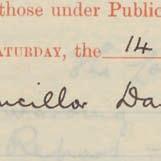 those under Public
ATURDAY, the 14
ncillor Da